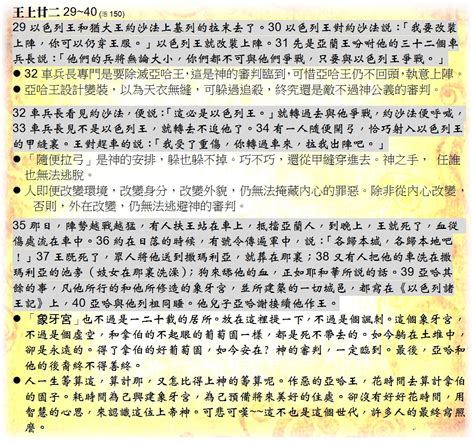 王上廿二 29~40 (活 150)
29 以色列王和猶大王約沙法上基列的拉末去了。30 以色列王對約沙法說：「我要改裝
上陣，你可以仍穿王服。」以色列王就改裝上陣。31 先是亞蘭王吩咐他的三十二個車
兵長說：「他們的兵將無論大小，你們都不可與他們爭戰，只要與以色列王爭戰。」
● 32 車兵長專門是要除滅亞哈王，這是神的審判臨到，可惜亞哈王仍不回頭，執意上陣。
● 亞哈王設計變裝，以為天衣無縫，可躲過追殺，終究還是敵不過神公義的審判。
32 車兵長看見約沙法，便說：「這必是以色列王。」就轉過去與他爭戰，約沙法便呼喊，
33 車兵長見不是以色列王，就轉去不追他了。34 有一人隨便開弓，恰巧射入以色列王
的甲縫裏。王對趕車的說：「我受了重傷，你轉過車來，拉我出陣吧。」
● 「隨便拉弓」是神的安排，躲也躲不掉。巧不巧，還從甲縫穿進去。神之手， 任誰
也無法逃脫。
● 人即便改變環境，改變身分，改變外貌，仍無法掩藏內心的罪惡。除非從內心改變，
否則，外在改變，仍無法逃避神的審判。
35 那日，陣勢越戰越猛，有人扶王站在車上，抵擋亞蘭人，到晚上，王就死了，血從
傷處流在車中。36 約在日落的時候，有號令傳遍軍中，說：「各歸本城，各歸本地吧
！」37 王既死了，眾人將他送到撒瑪利亞，就葬在那裏；38 又有人把他的車洗在撒
瑪利亞的池旁（妓女在那裏洗澡）；狗來餂他的血，正如耶和華所說的話。39 亞哈其
餘的事，凡他所行的和他所修造的象牙宮，並所建築的一切城邑，都寫在《以色列諸
王記》上，40 亞哈與他列祖同睡。他兒子亞哈謝接續他作王。
● 「象牙宮」也不過是一二十載的居所。放在這裡提一下，不過是個諷刺。這個象牙宮，
不過是個虛空，和拿伯的不起眼的葡萄園一樣，都是死不帶去的。如今躺在土堆中，
卻是永遠的。得了拿伯的好葡萄園，如今安在？神的審判，一定臨到。最後，亞哈和
他的後裔終不得善終。
● 人一生籌算這，算計那，又怎比得上神的籌算呢。作惡的亞哈王，花時間去算計拿伯
的園子。耗時間為己興建象牙宮，為己預備將來美好的住處。卻沒有好好花時間，用
智慧的心思，來認識這位上帝神。可悲可嘆~~這不也是這個世代，許多人的最終寫照
麼。